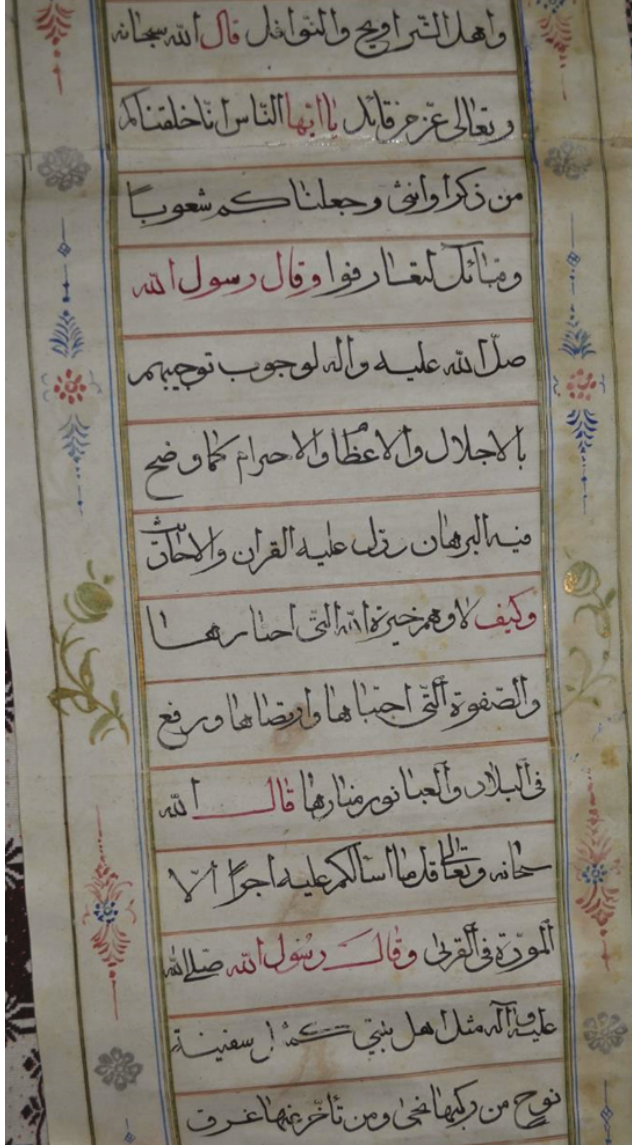 واهل التراويح والنوافل قال الله سبحانه
وتعالى عز من قائل ياايها الناس انا خلقناكم
من ذكر او انثى وجعلناكم شعوبا
وقبائل لتعارفوا وقال رسول الله
صل الله عليه واله لوجوب توجيههم
بالاجلال والاعظام والاحترام كما وضح
فيه البرهان ونزل عليه القران والاحاديث
وكيف لا وهم خيرة الله التي اختارها
والصفوة التي اجتباها وارتضاها ورفع
في البلاد والعباد نور منارها قال الله
سبحانه وتعالى قل ما اسألكم عليه اجرا الا
المودة في القربى وقال رسول الله صلى الله
عليه وآله مثل اهل بيتي كمثل سفينة
نوح من ركبها نجى ومن تأخر عنها غرق